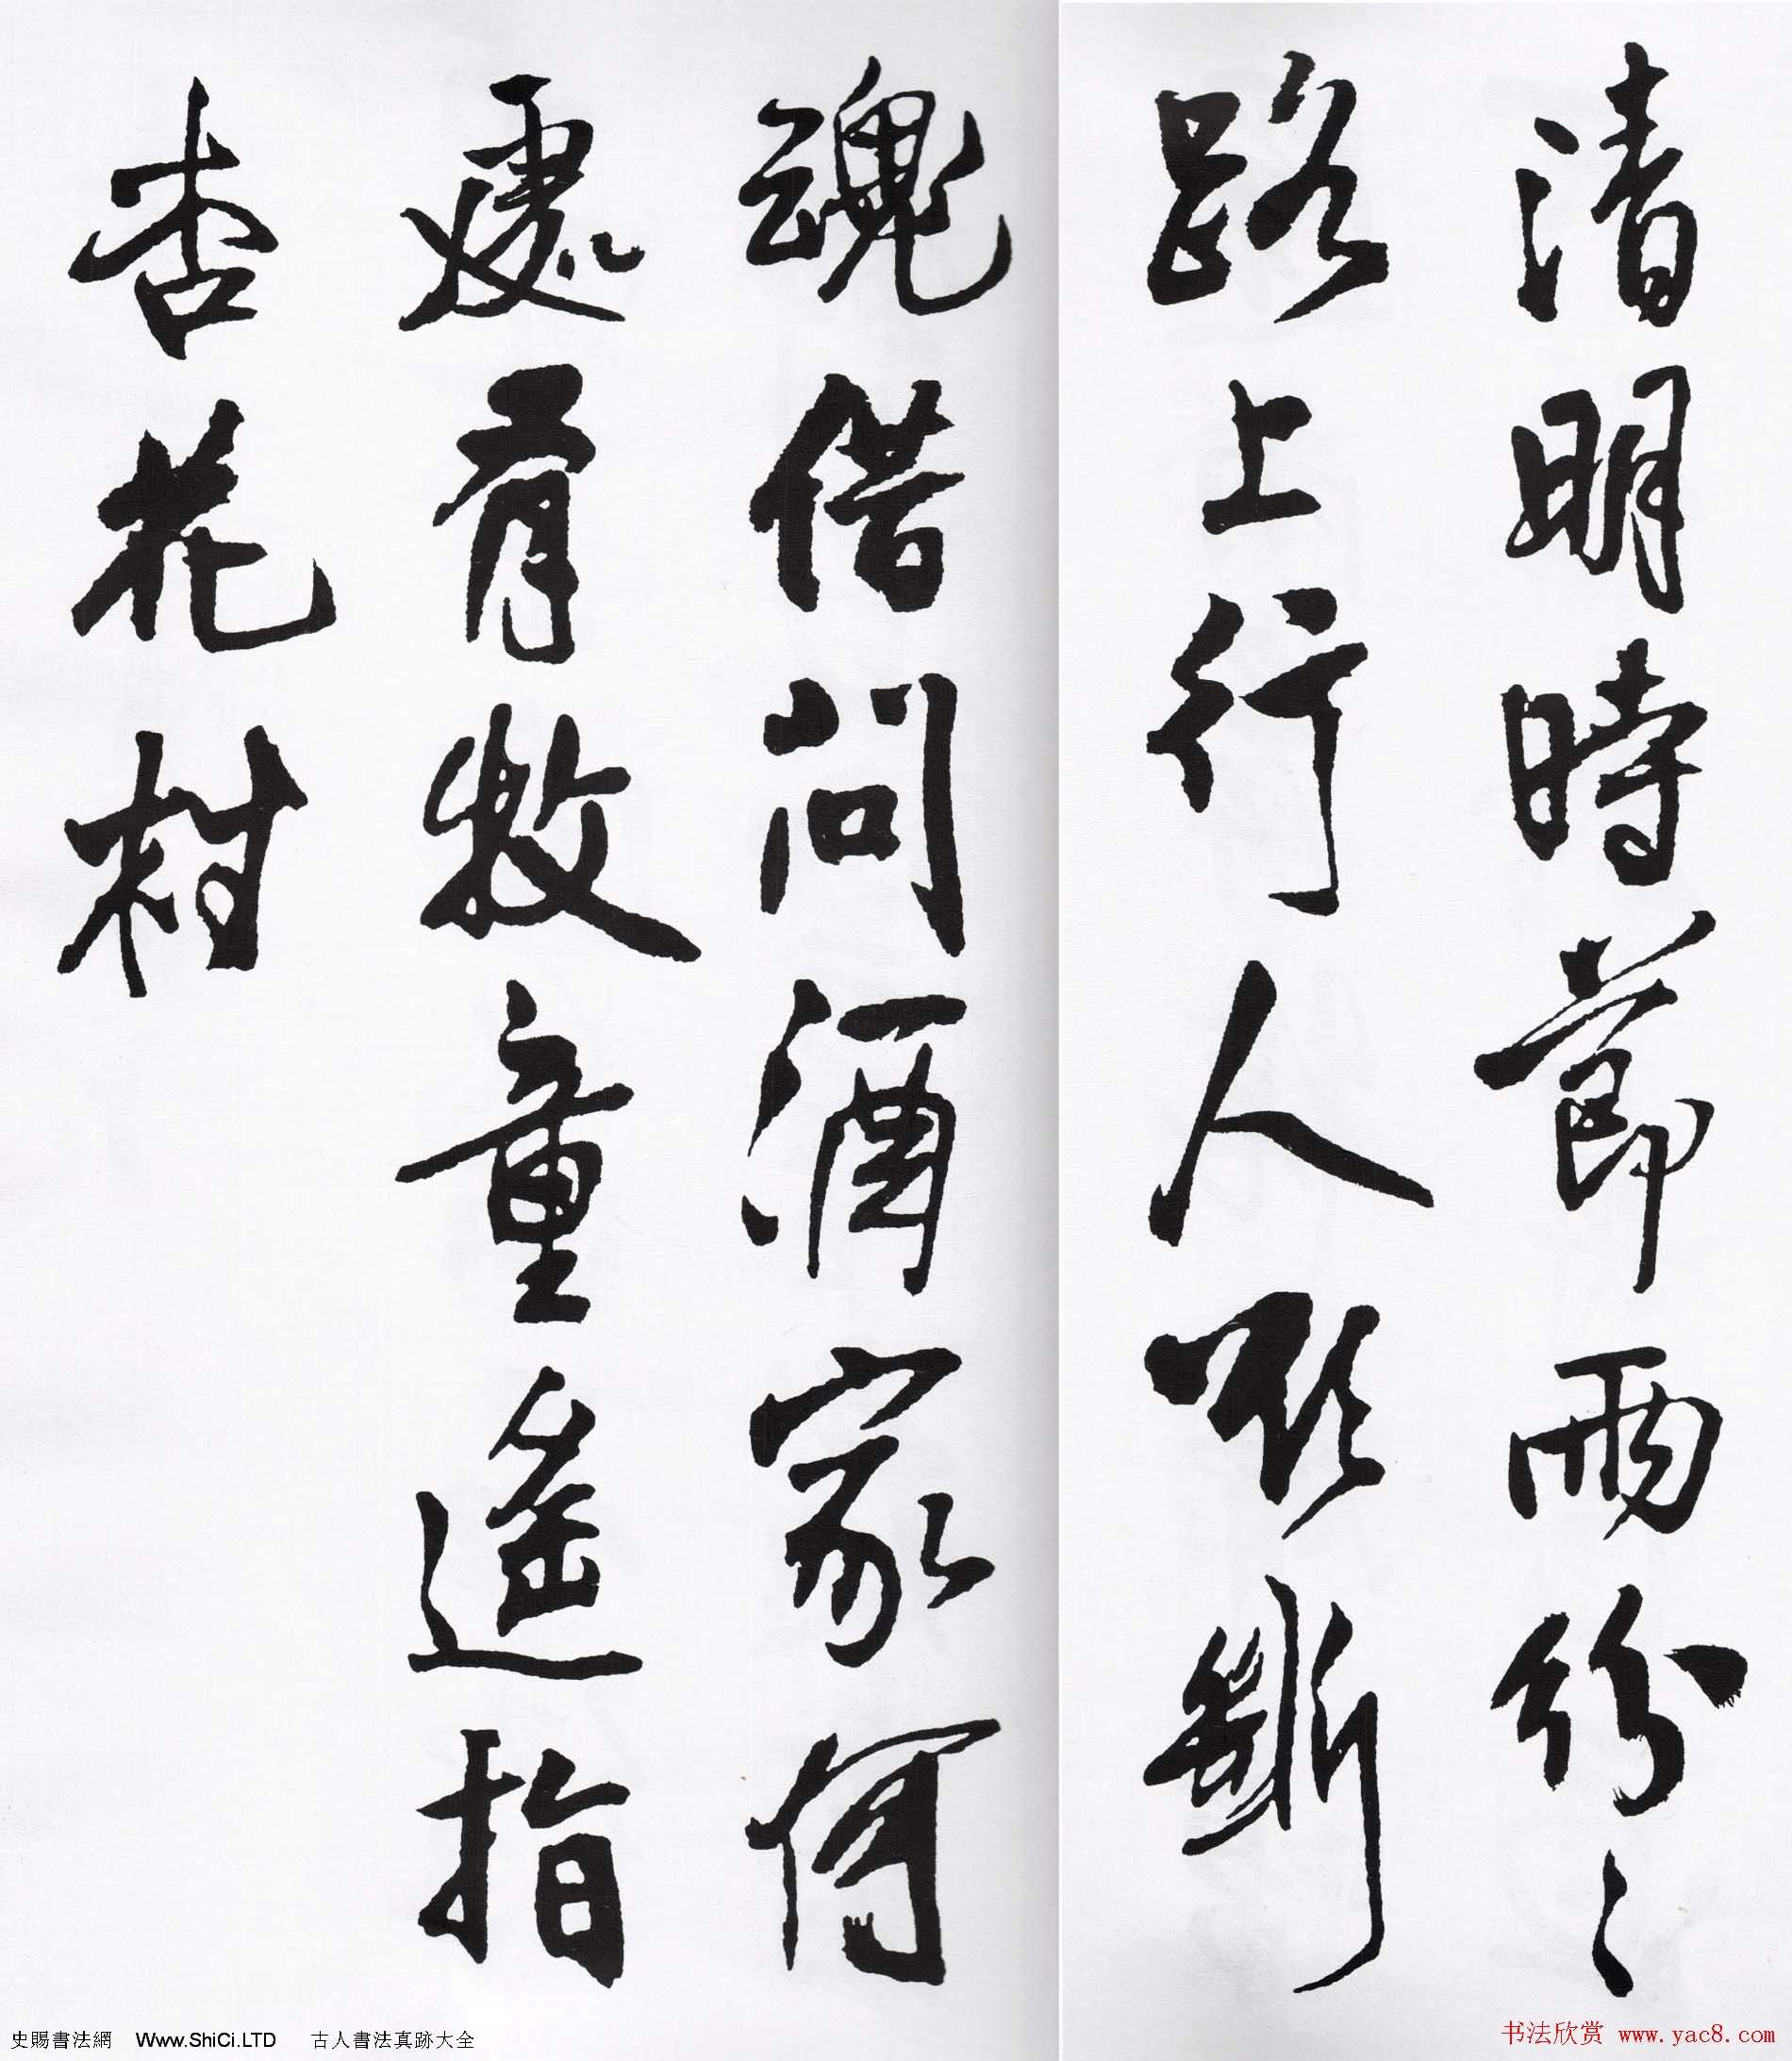 清明時節雨紛〻
路上行人欲斷
魂借問酒家何
處有牧童遙指
杏花村
史賜書法網 Www.ShiCi.LTD 古人書法真跡大全
书法欣赏 www.yac8.com